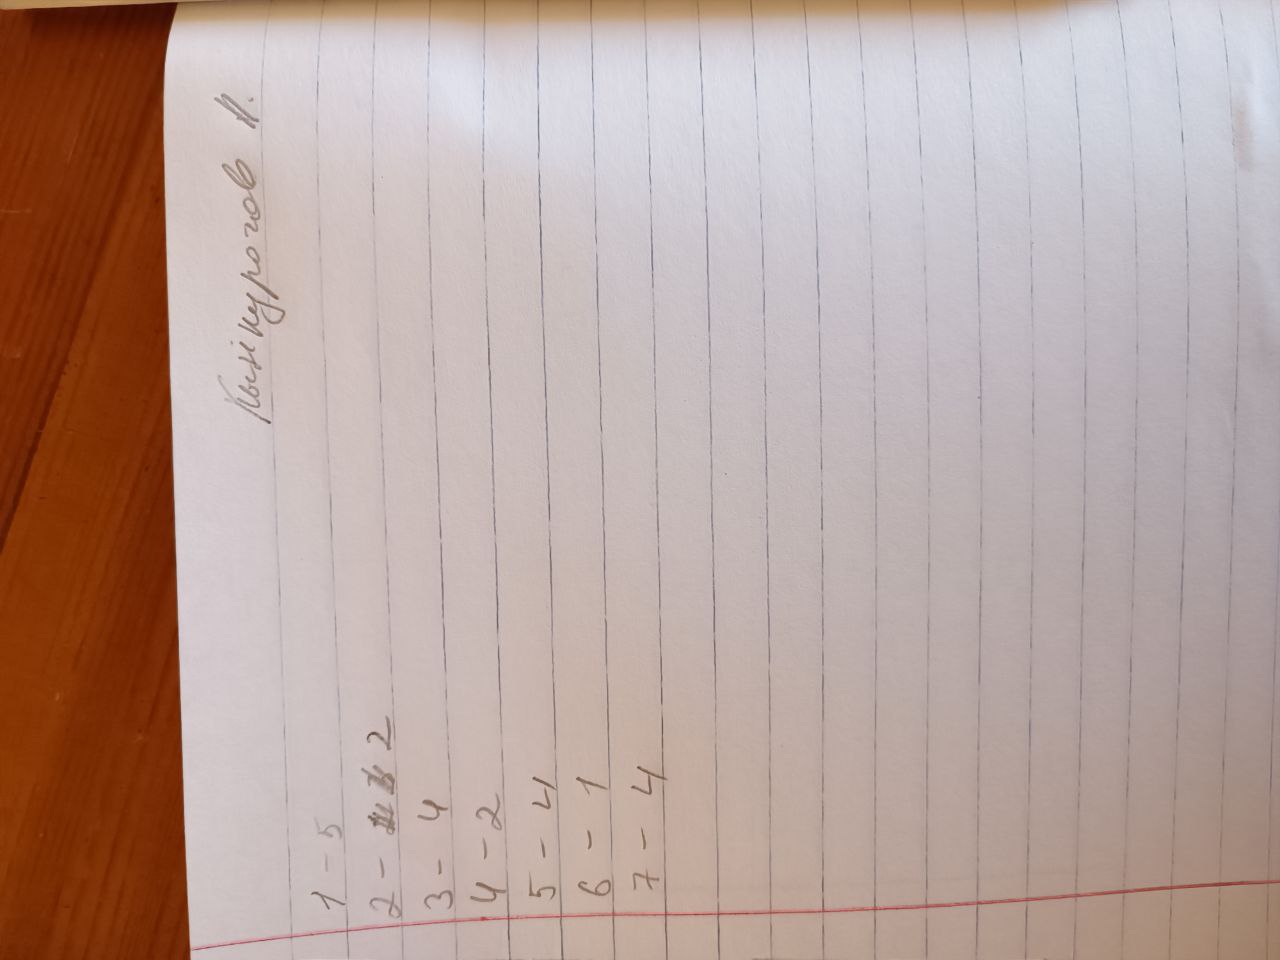 Кынкурогов Н.
1 - 5
2 - 2
3 - 4
4 - 2
5 - 4
6 - 1
7 - 4